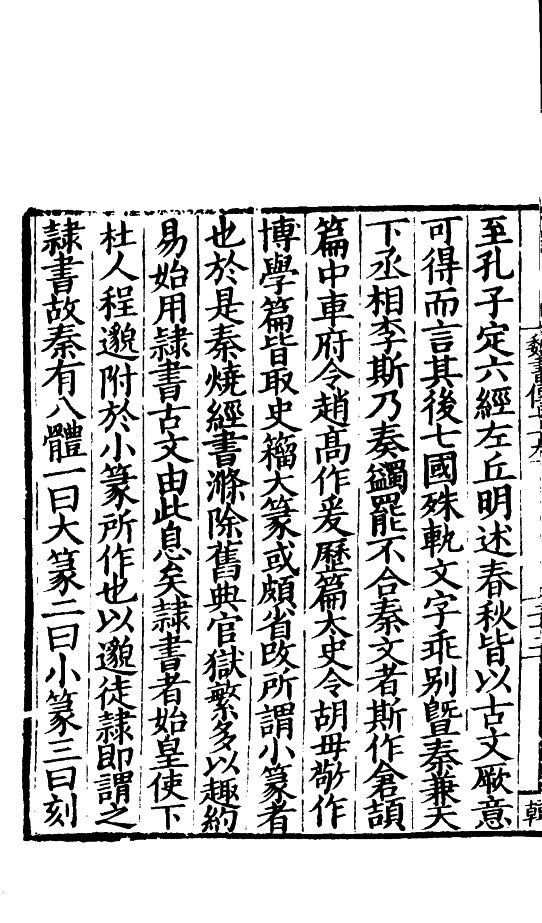 至孔子定六經左丘明述春秋皆以古文厥意
可得而言其後七國殊軌文字乖別暨秦兼天
下丞相李斯乃奏蠲罷不合秦文者斯作倉頡
篇中車府令趙高作爰歷篇太史令胡毋敬作
博學篇皆取史籀大篆或頗省改所謂小篆者
也於是秦燒經書滌除舊典官獄繁多以趣約
易始用隸書古文由此息矣隸書者始皇使下
杜人程邈附於小篆所作也以邈徒隸即謂之
隸書故秦有八體一曰大篆二曰小篆三曰刻